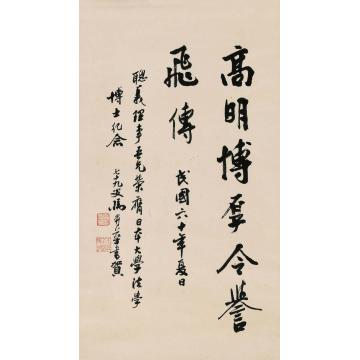 高明博厚令譽
飛傳 民國六十年夏日
聰義理事長兄榮膺日本大學法學
博士紀念
七十九叟
書賀